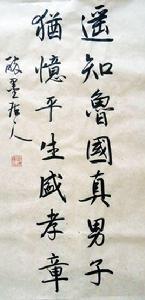 遥知魯國真男子
猶憶平生盛孝章
醉墨作人